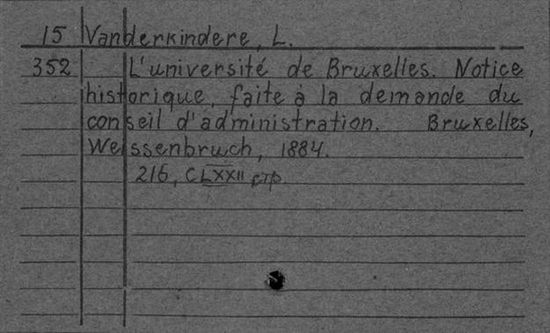 15 Vanderkindere, L.
352 L'université de Bruxelles. Notice
historique, faite à la demande du
conseil d'administration. Bruxelles,
Weissenbruch, 1884.
216, CLXXII стр.